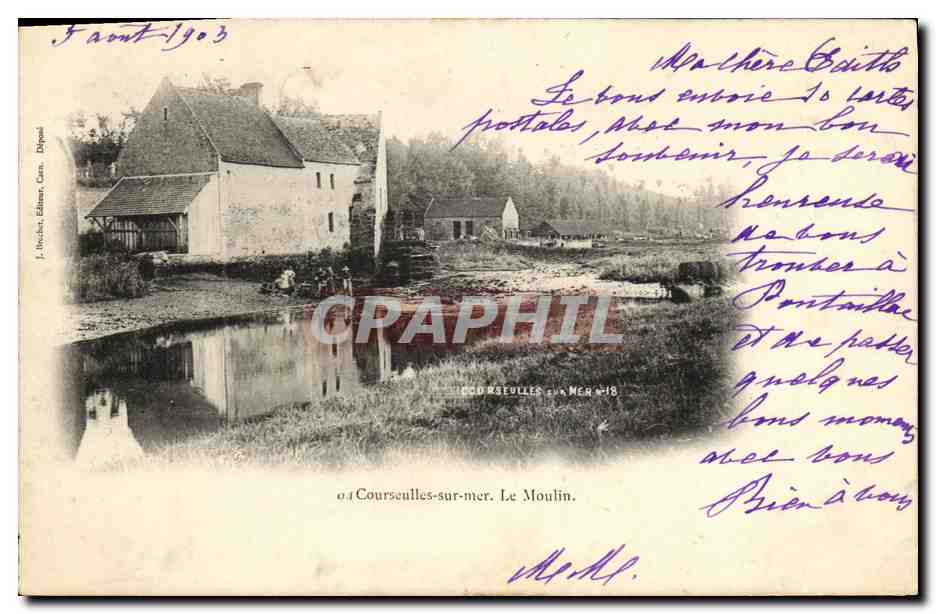 5 août 1903
Ma chère Edith
Je vous envoie 10 cartes
postales, avec mon bon
souvenir, je serai
heureuse
de vous
trouver à
Pontaillac
et de passer
quelques
bons moments
avec vous
Bien à vous
M. M.
J. Bréchet, Editeur, Caen. Déposé
CAPHIL
COURSEULLES SUR MER N 18
Courseulles-sur-mer. Le Moulin.